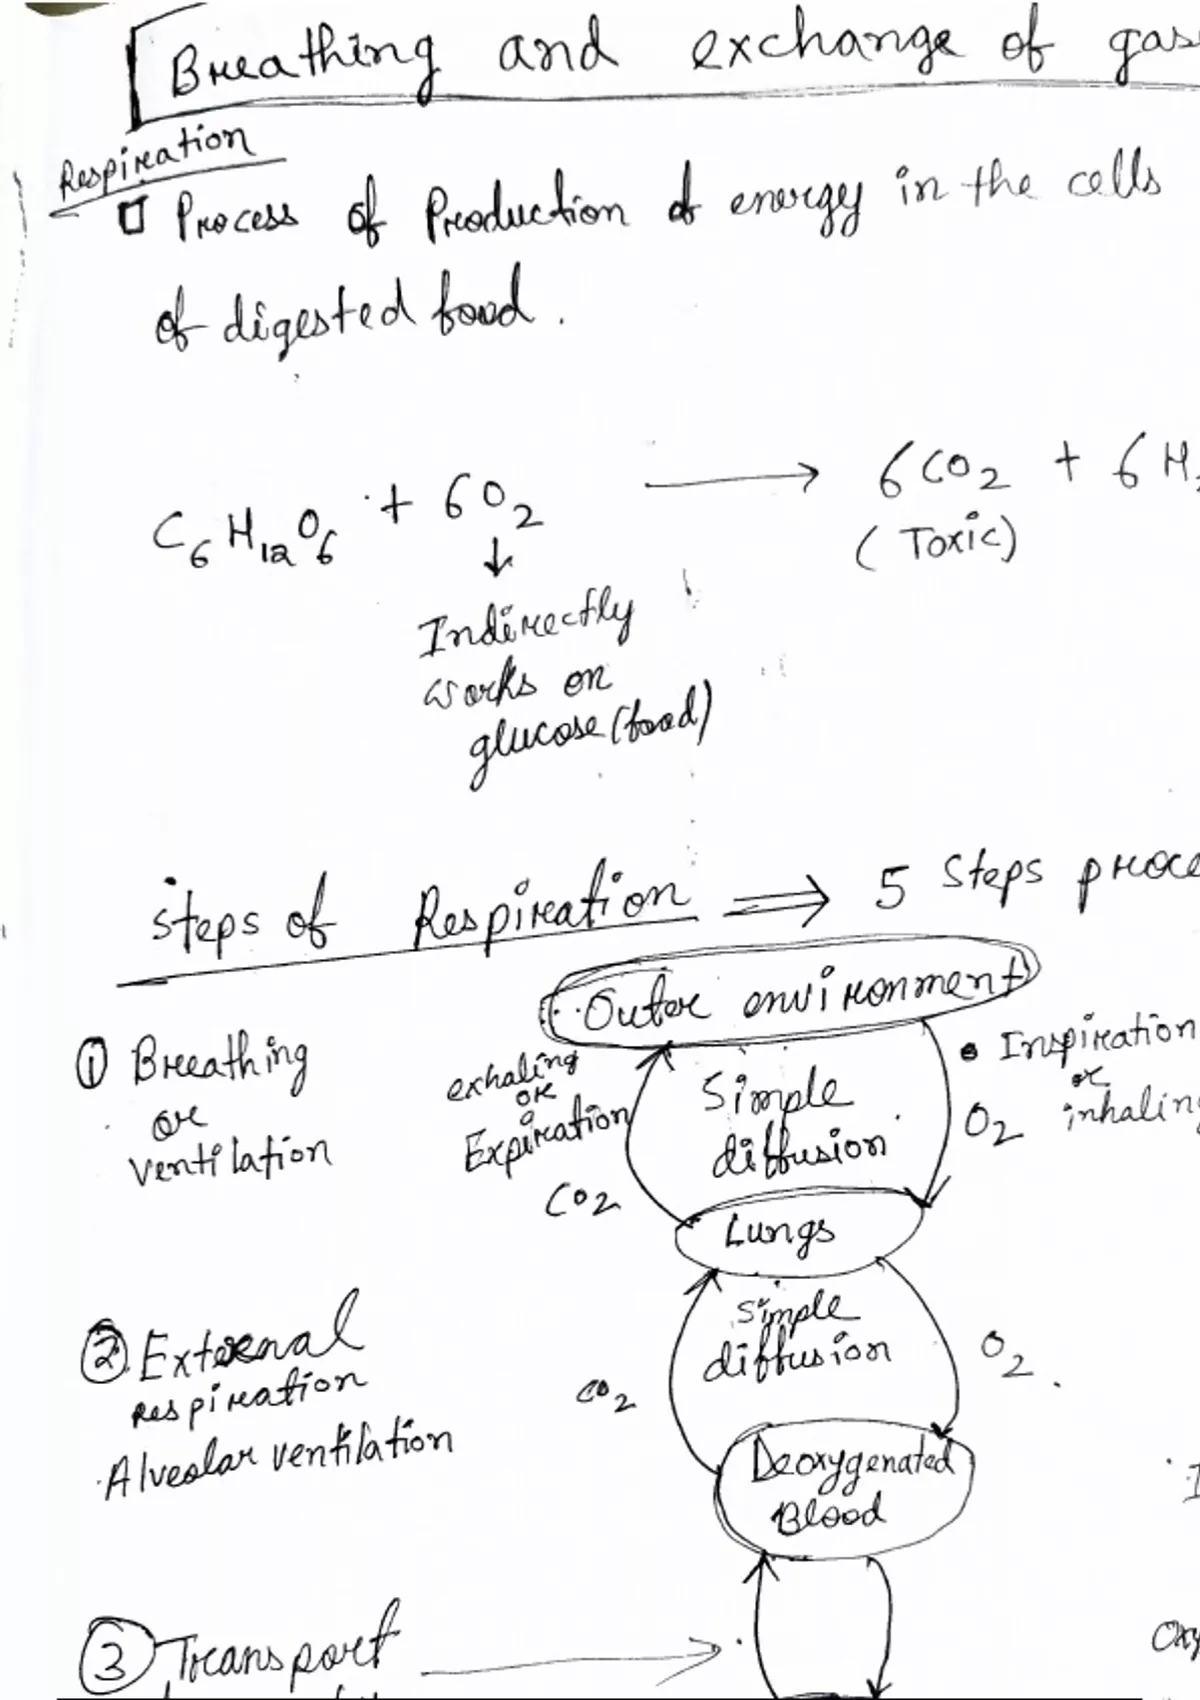 Breathing and exchange of gas
Respiration
Process of Production of energy in the cells
of digested food.
C6H12O6 + 6O2 → 6CO2 + 6H
(Toxic)
↓
Indirectly
works on
glucose (food)
steps of Respiration ⇒ 5 steps proce
Outer environment
① Breathing
or
ventilation
exhaling
or
Expiration
CO2
Simple
diffusion
• Inspiration
or
inhaling
O2
Lungs
② External
respiration
Alveolar ventilation
CO2
simple
diffusion
O2
Deoxygenated
Blood
③ Transport →
Oxy